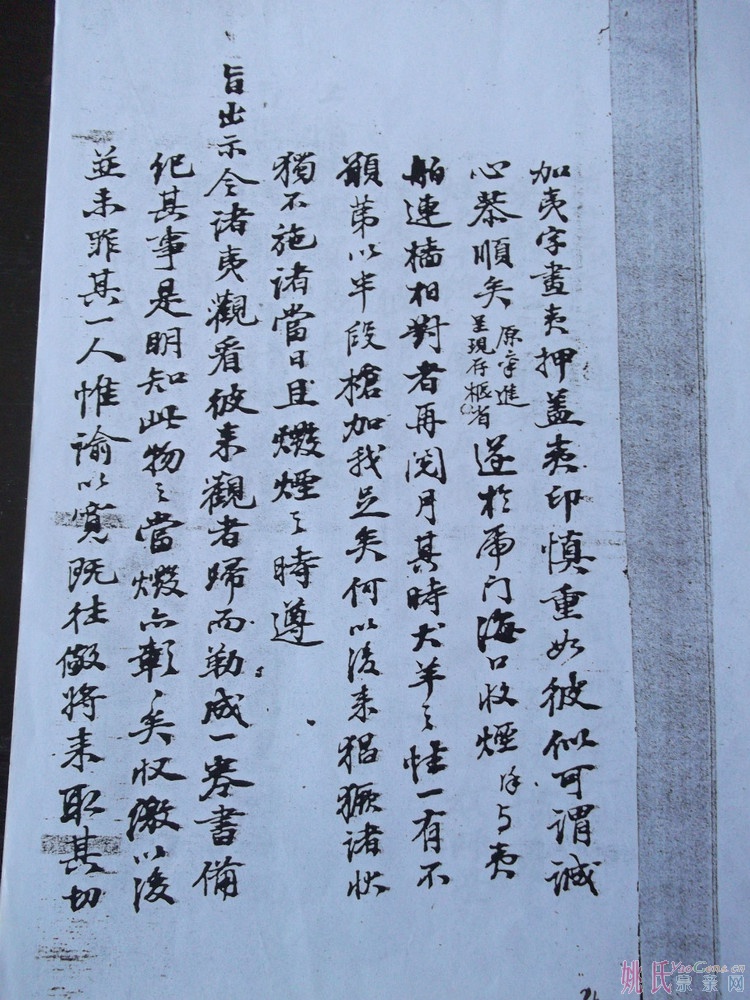 加夷字畫夷押蓋夷印慎重如彼似可謂誠
心恭順矣原稟進呈現存樞省遂於虎门海口收煙餘与夷
舶連樯相對者再閲月其時犬羊之性一有不
順第以半段槍加我足矣何以後来猖獗諸状
獨不施諸當日且燬煙之時遵
旨出示令諸夷觀看彼来觀者歸而勒成一卷書備
紀其事是明知此物之當燬亦彰〻矣收繳以後
並未罪其一人惟諭以寛既往儆將来取其切
姚氏宗亲网
YaoGens.cn